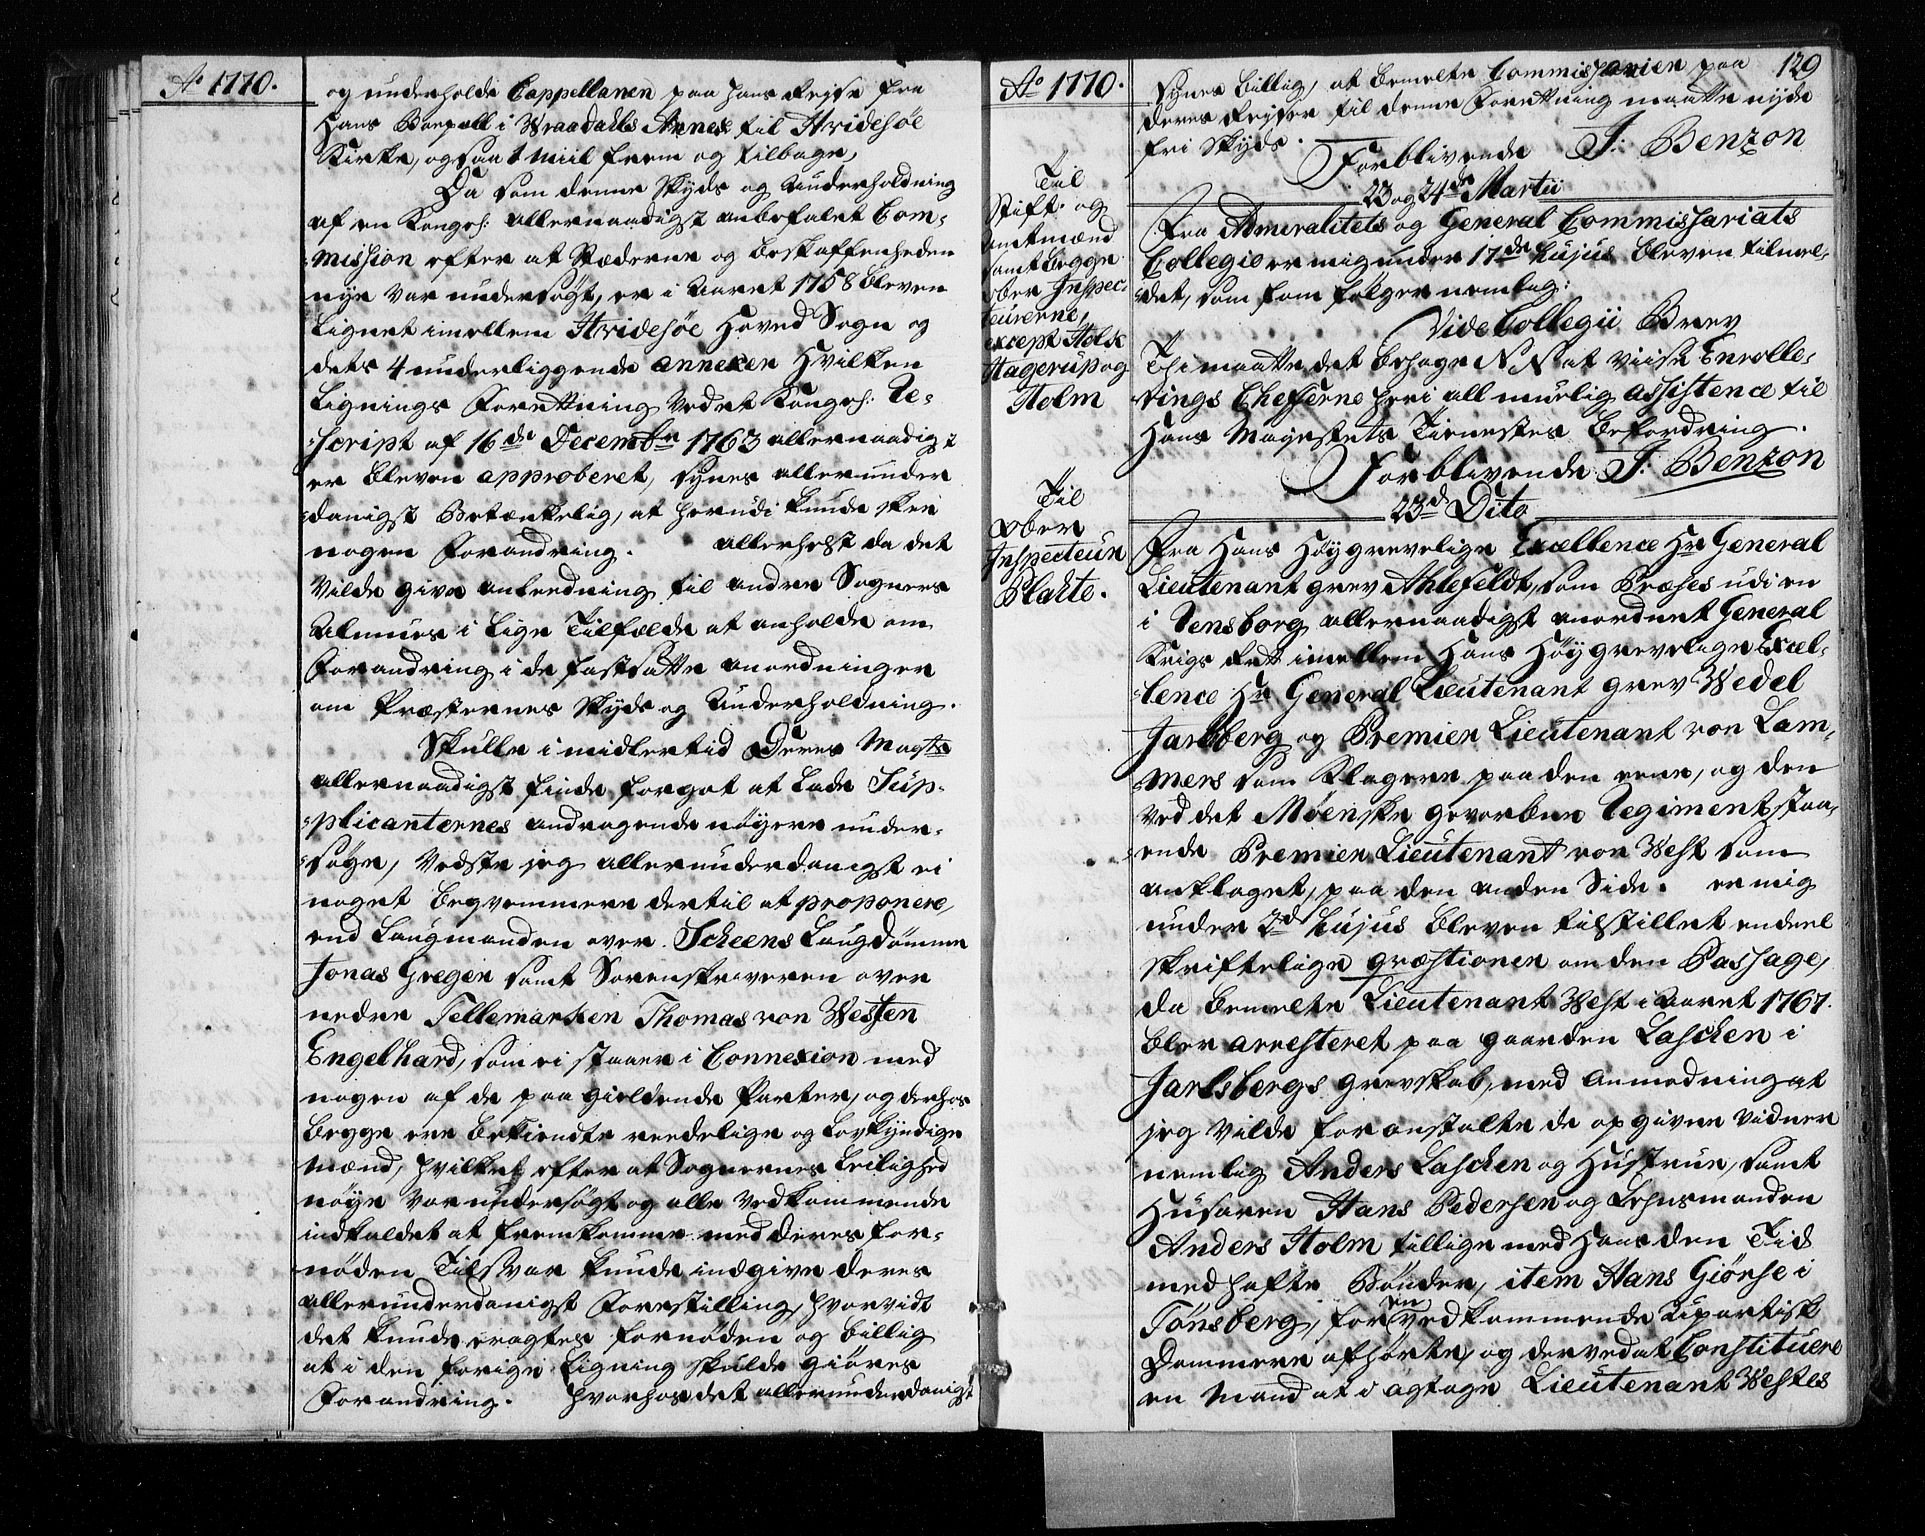 Ao 1770.
og underholde Cappellanen paa hans Reise fra
Hans Boepæll i Wraadahls Annex til Hvidesøe
Kirke, ogsaa 1 Miil frem og tilbage,
Da som denne Skyds og Underholdning
af en Kongel: allernaadigst anbefalet Com-
mission efter at Stæderne og beskaffenheden
nye var undersøgt, er i Aaret 1758 bleven
Lignet imellem Hvidesøe Hoved Sogn og
dets 4 underliggende annexer hvilken
Lignings Forrettning ved et Kongel: Re-
script af 16de Decembr 1763 allernaadigst
er bleven approberet, synes allerunder
danigst Betænkelig, at herudi kunde skee
nogen Forandring. allerhelst da det
vilde give anledning til andre Sogners
Almues i Lige Tilfælde at anholde om
Forandring i de fastsatte anordninger
om Præsternes Skyds og Underholdning.
Skulle imidlertid Deres Mayts
allernaadigst finde forgot at lade Sup-
plicanternes andragende nøyere under-
søge, vedste jeg allerunderdanigst ei
noget beqvemmere dertil at proponere,
end Laugmanden over Scheens Laugdømme
Jonas Gregers samt Sorenskriveren over
nedre Tellemarken Thomas von Westen
Engelhard, som ei staaer i Connexion med
nogen af de paa gieldende Parter, og derhos
begge ere bekiendte reedelige og Lovkyndige
Mænd, hvilket efter at Sognernes Leilighed
nøye var undersøgt og alle vedkommende
indkaldet at fremkomme med deres for-
nøden Tilsvar kunde indgive deres
allerunderdanigst Forestilling, hvorvidt
det kunde eragtes fornøden og billig
at i den forige Ligning skulde giøres
Forandring. hvorhos det allerunderdanigst
Ao 1770.
129
synes billig, at bemelte Commissarier paa
deres Reiser til denne Forrettning maatte nyde
fri Skyds.
Forblivende J: Benzon
23 og 24de Martii
Til
Stift- og
Amtmænd
samt begge
ober Inspec-
teurerne,
except Holst
Hagerup og
Holm
Fra Admiralitets og General Commissariats
Collegio er mig under 17de hujus bleven tilmel-
det, som som følger nemlig:
Vide Collegii Brev
Thi maatte det behage NN at viise Enrolle-
rings Chefferne heri all muelig assistence til
Hans Mayestets Tienestes befordring.
Forblivende J: Benzon
23d Dito
Til
Ober
Inspecteur
Plade.
Fra Hans Høygrevelige Excellence Hr General
Lieutenant grev Ahlefeldt, som Præses udi en
i Rensborg allernaadigst anordnet General
Krigs Ret imellem Hans Høygrevelige Excel-
lence Hr General Lieutenant grev Wedel
Jarlsberg og Premier Lieutenant von Lam-
mers som Klagere paa den eene, og den
ved det Møenske gevorbne Regiment staa-
ende Premier Lieutenant von West som
anklaget, paa den anden Side. er mig
under 2d hujus bleven tilstillet endeel
skriftelige qvæstioner om den Passage,
da bemelte Lieutenant West i Aaret 1767.
blev arresteret paa gaarden Laschen i
Jarlsbergs grevskab, med Anmodning at
jeg vilde foranstalte de opgivne vidner
nemlig Anders Laschen og Hustrue, samt
Husaren Hans Pedersen og Lehnsmanden
Anders Holm tillige med Hans den Tid
medhafte Bønder, item Hans Giønse i
Tønsberg, for en vedkommende Upartisk
Dommere afhørte, og derved at Constituere
en Mand at i agtage Lieutenant Westes